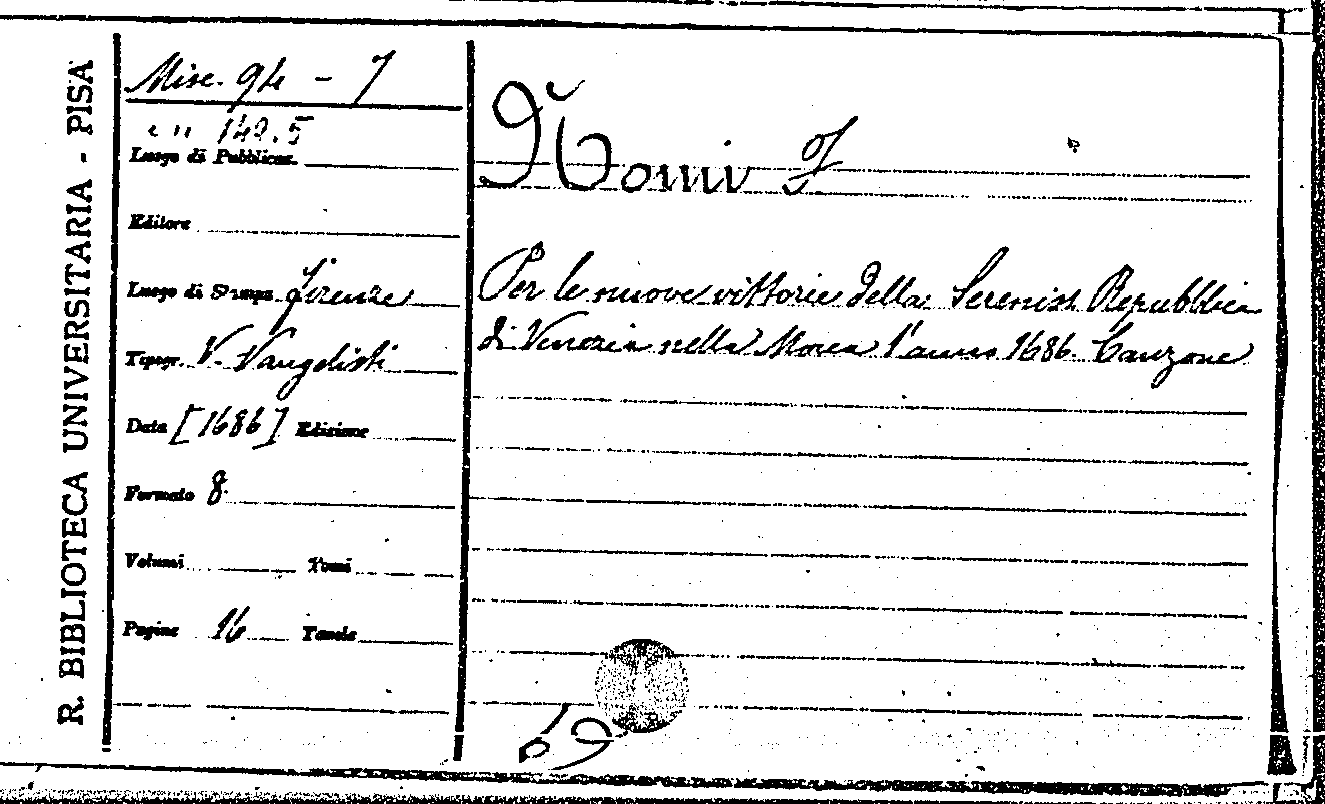 R. BIBLIOTECA UNIVERSITARIA - PISA
Misc. 94 - 7
" " 149.5
Luogo di Pubblicaz.
Editore
Luogo di Stampa Firenze
Tipogr. V. Vangelisti
Data [1686] Edizione
Formato 8
Volumi Tomi
Pagine 16 Tavole
Nomi F
Per le nuove vittorie della Serenis. Repubblica
di Venezia nella Morea l'anno 1686. Canzone